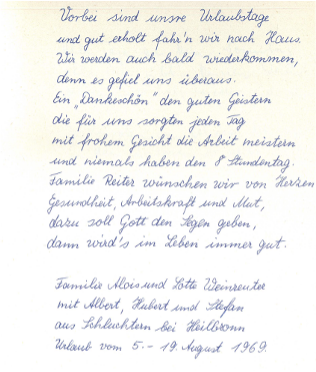 Vorbei sind unsre Urlaubstage
und gut erholt fahr'n wir nach Haus.
Wir werden auch bald wiederkommen,
denn es gefiel uns überaus.
Ein „Dankeschön" den guten Geistern
die für uns sorgten jeden Tag
mit frohem Gesicht die Arbeit meistern
und niemals haben den 8 Stundentag.
Familie Reiter wünschen wir von Herzen
Gesundheit, Arbeitskraft und Mut,
dazu soll Gott den Segen geben,
dann wird's im Leben immer gut.
Familie Alois und Lotte Weinreuter
mit Albert, Hubert und Stefan
aus Schluchtern bei Heilbronn
Urlaub vom 5. - 19. August 1969.